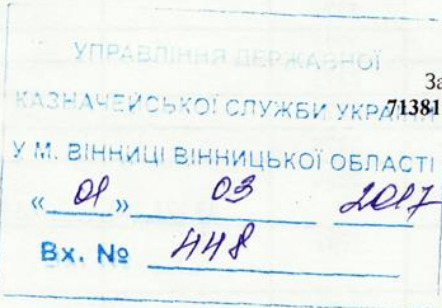 УПРАВЛІННЯ ДЕРЖАВНОЇ
За
КАЗНАЧЕЙСЬКОЇ СЛУЖБИ УКРАЇНИ
71381
У М. ВІННИЦІ ВІННИЦЬКОЇ ОБЛАСТІ
« 01 » 03 2017
Вх. № 448